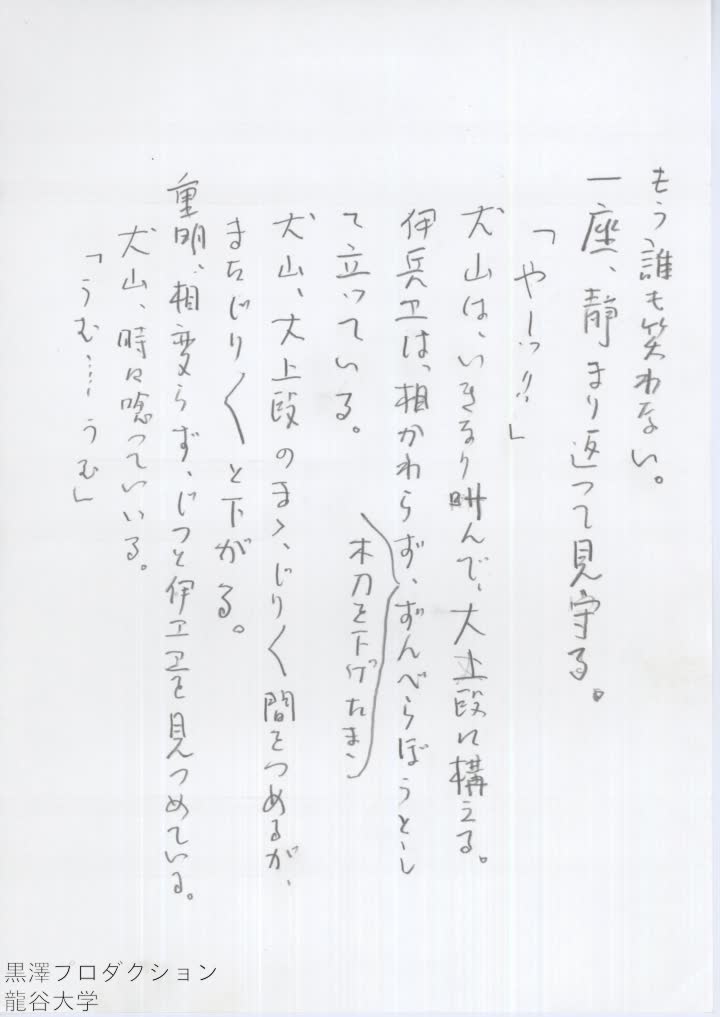 もう誰も笑わない。
一座、静まり返って見守る。
「やーッ!!」
犬山は、いきなり叫んで、大上段に構える。
伊兵エは、相かわらず、ずんべらぼうとし
木刀を下げたまゝ
て立っている。
犬山、大上段のまゝ、じり〱間をつめるが、
またじり〱と下がる。
重明、相変らず、じっと伊エエを見つめている。
犬山、時々唸っていいる。
「うむ……うむ」
黒澤プロダクション
龍谷大学